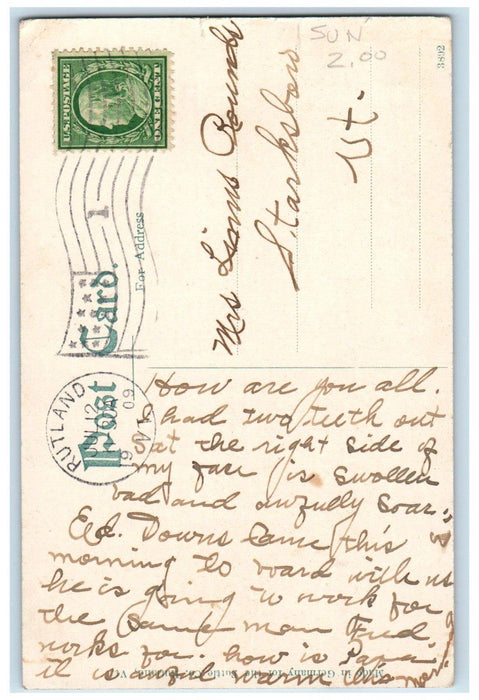 SUN
2.00
3892
U.S. POSTAGE
ONE CENT
1
RUTLAND
JUL 12
1909
VT.
Post Card.
For Address
Mrs Liam Rounds
Starksboro
Vt.
How are you all.
I had two teeth out
Sat the right side of
my face is swollen
bad and awfully soar.
Ed. Downs came this
morning to board with us
he is going to work for
the same man Fred
works for. how is Papa
it is awful warm this mor
Made in Germany for the Tuttle Co. Rutland, Vt.